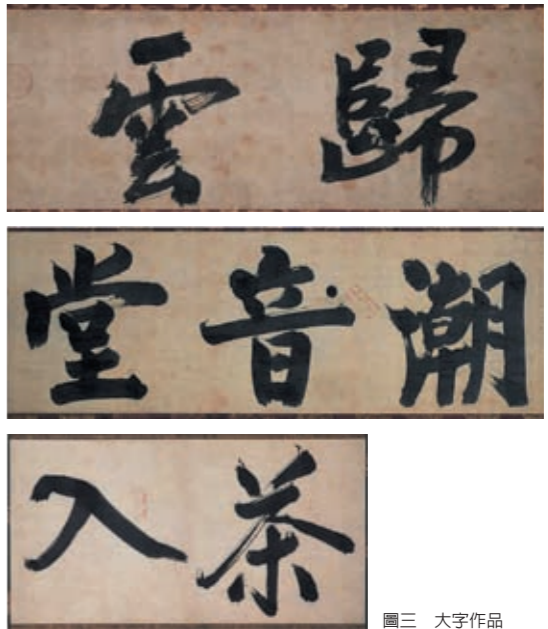 歸雲
潮音堂
茶入
圖三 大字作品